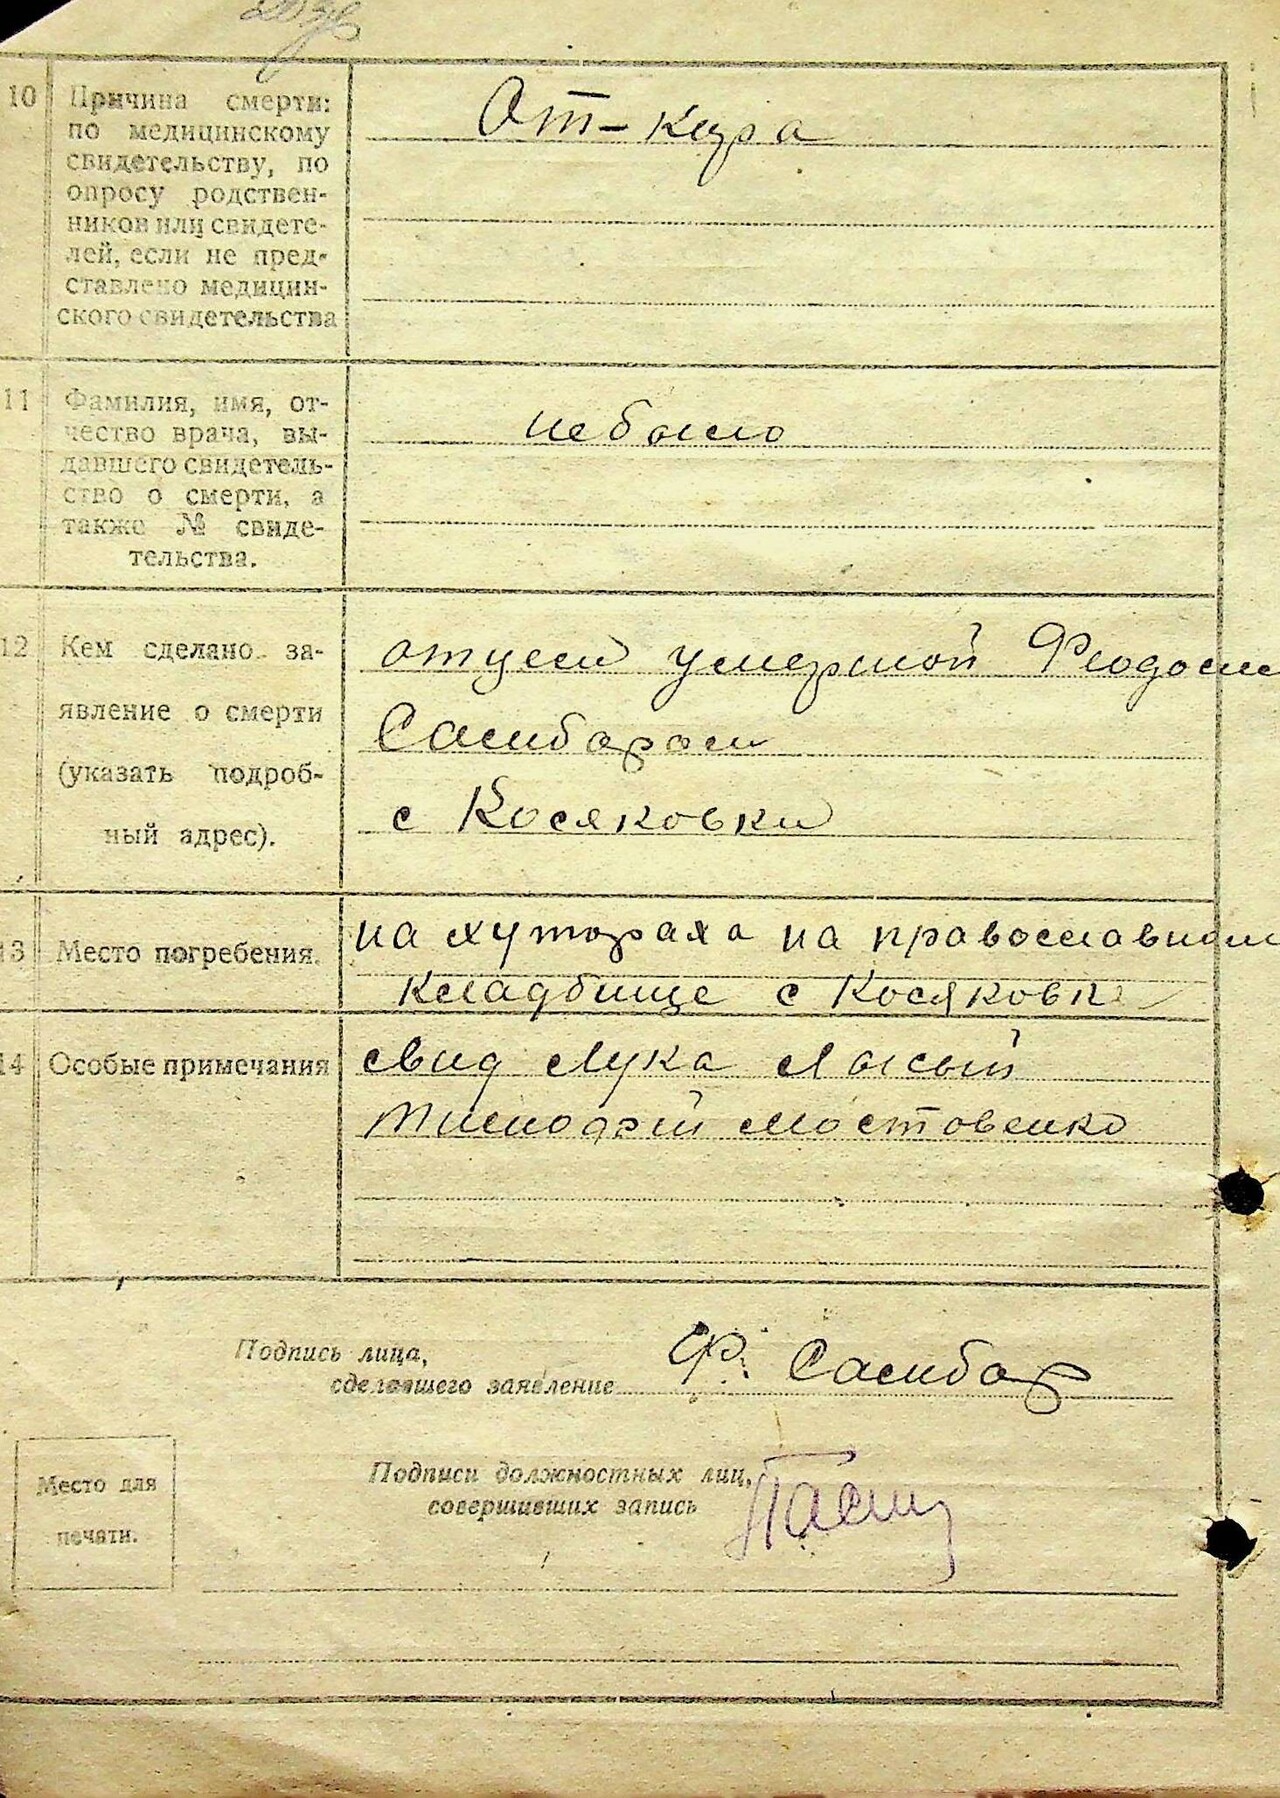 10 Причина смерти:
по медицинскому
свидетельству, по
опросу родствен-
ников или свидете-
лей, если не пред-
ставлено медицин-
ского свидетельства
От-кура
11 Фамилия, имя, от-
чество врача, вы-
давшего свидетель-
ство о смерти, а
также № свиде-
тельства.
небыло
12 Кем сделано за-
явление о смерти
(указать подроб-
ный адрес).
отцем умершой Фиодосие
Самбором
с Косяковки
13 Место погребения.
на хуторах на православном
кладбище с Косяковк
14 Особые примечания
свид Лука Лысый
Тимофий Мостовенко
Подпись лица,
сделавшего заявление
Ф. Самбор
Место для
печати.
Подписи должностных лиц,
совершивших запись